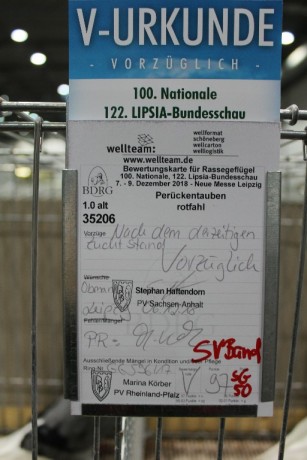 V-URKUNDE
- VORZÜGLICH -
100. Nationale
122. LIPSIA-Bundesschau
wellteam:
wellformat
schöneberg
wellcarton
wellogistik
www.wellteam.de
Bewertungskarte für Rassegeflügel
100. Nationale, 122. Lipsia-Bundesschau
7. - 9. Dezember 2018 - Neue Messe Leipzig
BDRG
Perückentauben
rotfahl
1.0 alt
35206
Vorzüge
Nach dem derzeitigen
Zuchtstand
Vorzüglich
Wünsche
Stephan Haftendorn
PV Sachsen-Anhalt
PR =
SV Band
Ausschließende Mängel in Kondition und Pflege
Ring Nr.
V 97
SG
50
Marina Körber
PV Rheinland-Pfalz